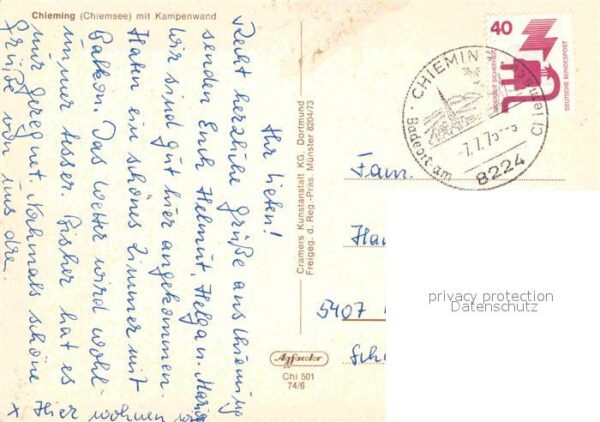 Chieming (Chiemsee) mit Kampenwand
Ihr lieben!
Recht herzliche Grüße aus Chieming
senden Euch Helmut, Helga u. Maria
Wir sind gut hier angekommen.
Haben ein schönes Zimmer mit
Balkon. Das Wetter wird wohl
immer besser. Bisher hat es
nur geregnet. Nochmals schöne
Grüße von uns drei.
x Hier wohnen wir
Cramers Kunstanstalt KG. Dortmund
Freigeg. d. Reg.-Präs. Münster 8204/73
Agfacolor
Chi 501
74/6
40
JEDERZEIT SICHERHEIT
DEUTSCHE BUNDESPOST
CHIEMING
Badeort am Chiemsee
8224
Fam.
Han
5407
Sch
privacy protection
Datenschutz